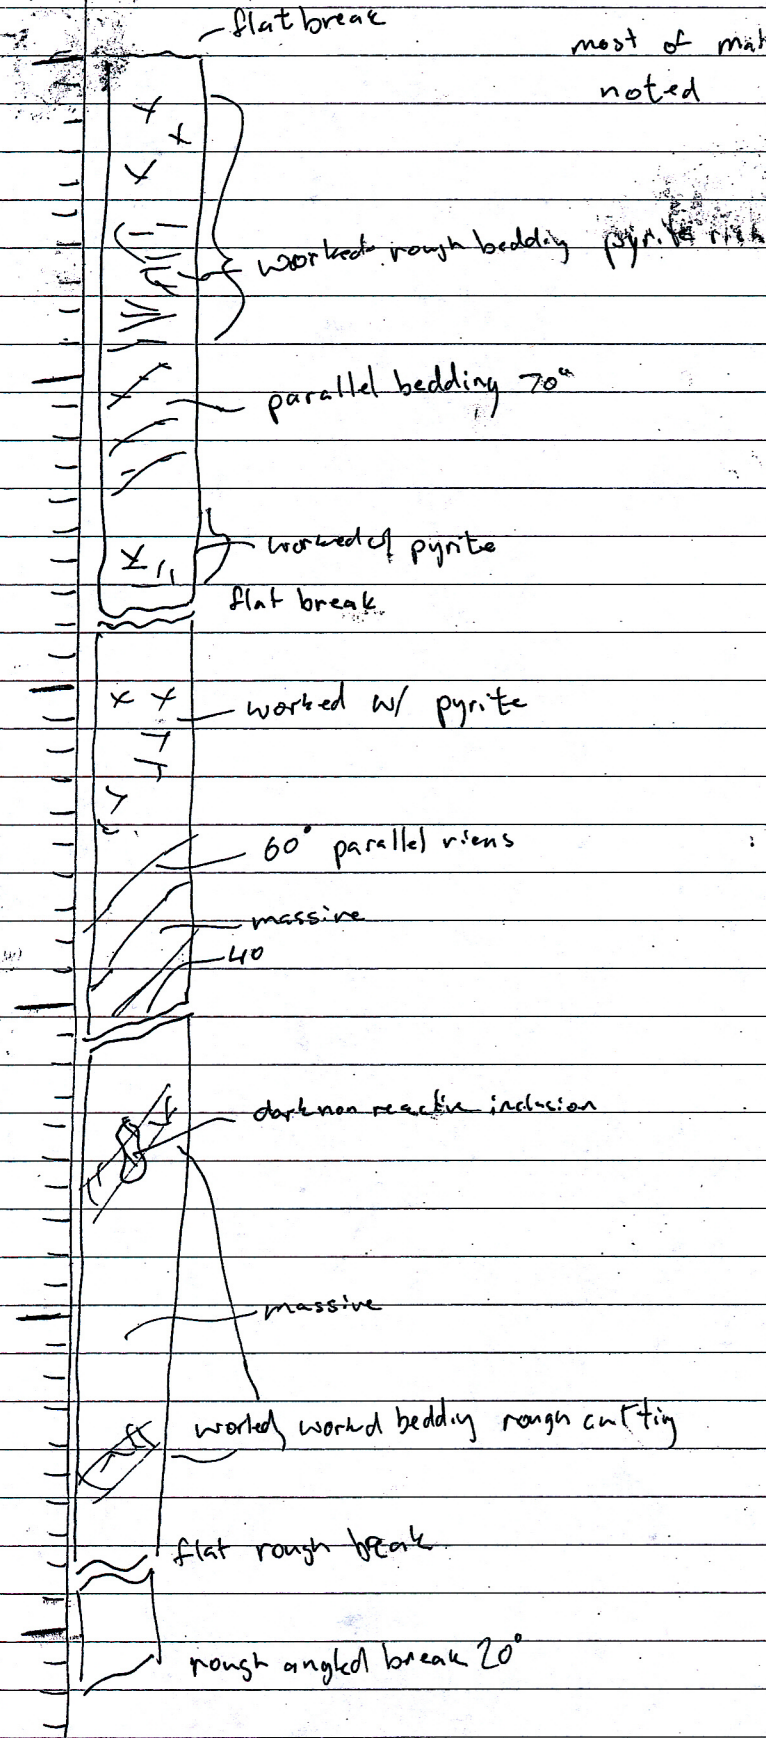 flat break
most of
noted
worked rough bedding pyrite
parallel bedding 70°
worked w/ pyrite
flat break
worked w/ pyrite
60° parallel viens
massive
40
dark non reactive inclusion
massive
worked, worked bedding rough cutting
flat rough break
rough angled break 20°